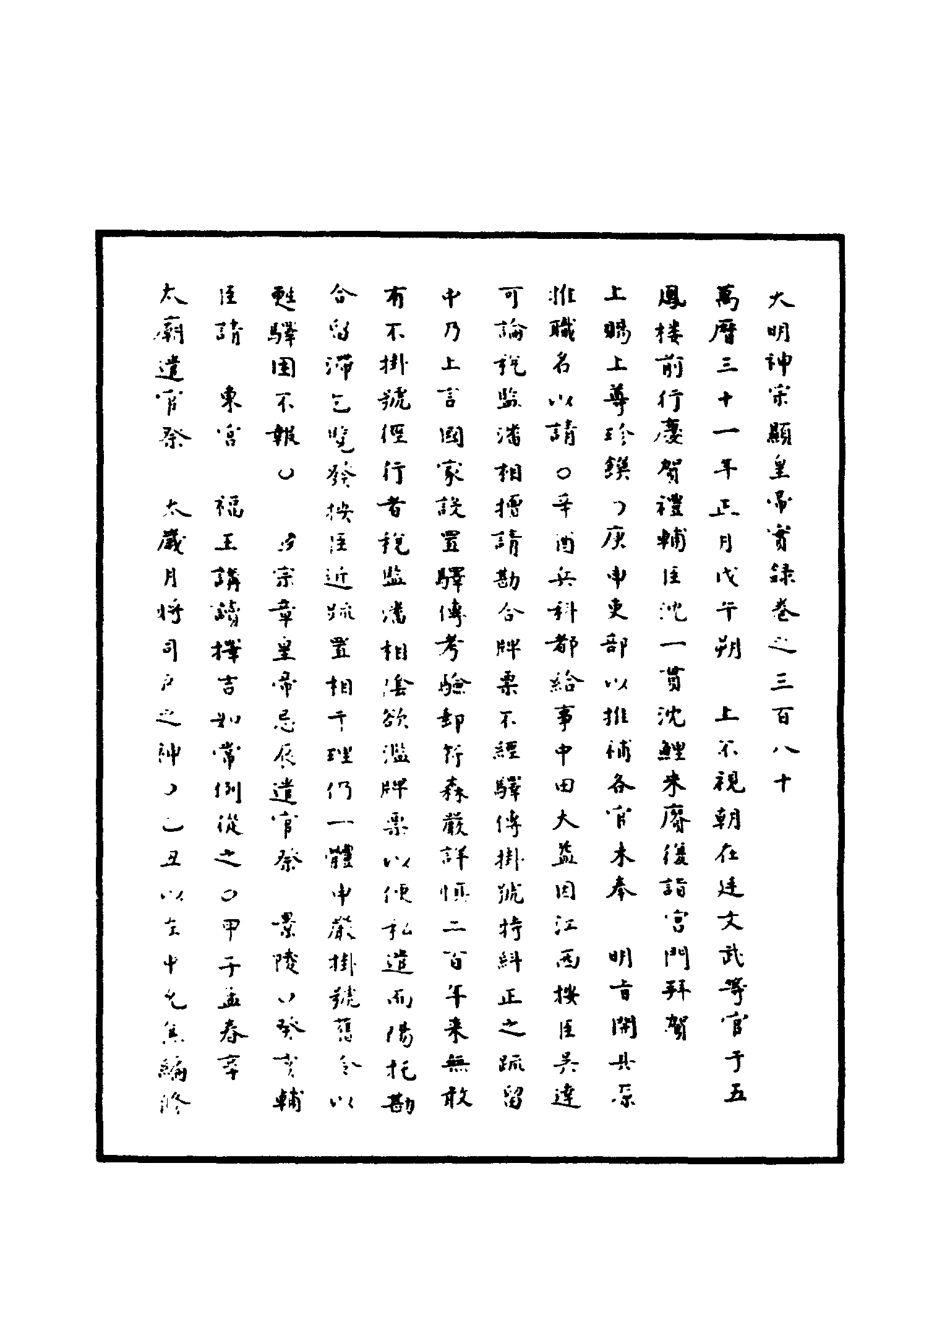 大明神宗顯皇帝實錄卷之三百八十
萬曆三十一年正月戊午朔　上不視朝在廷文武等官于五
鳳楼前行慶賀禮輔臣沈一貫沈鯉朱賡復詣宮門拜賀
上賜上尊珍饌○庚申吏部以推補各官未奉　明旨開具原
推職名以請○辛酉兵科都給事中田大益因江西按臣吳達
可論税監潘相擅請勘合牌票不經驛傳掛號持糾正之疏留
中乃上言國家設置驛傳考驗郵符森嚴詳慎二百年來無敢
有不掛號徑行者税監潘相陰欲濫牌票以便私遣而陽托勘
合留滯乞覽發按臣近疏置相于理仍一體申嚴掛號舊令以
甦驛困不報○　宗章皇帝忌辰遣官祭　景陵○癸亥輔
臣請　東宮　福王講讀擇吉如常例從之○甲子孟春享
太廟遣官祭　太歲月將司戶之神○乙丑以左中允焦編修